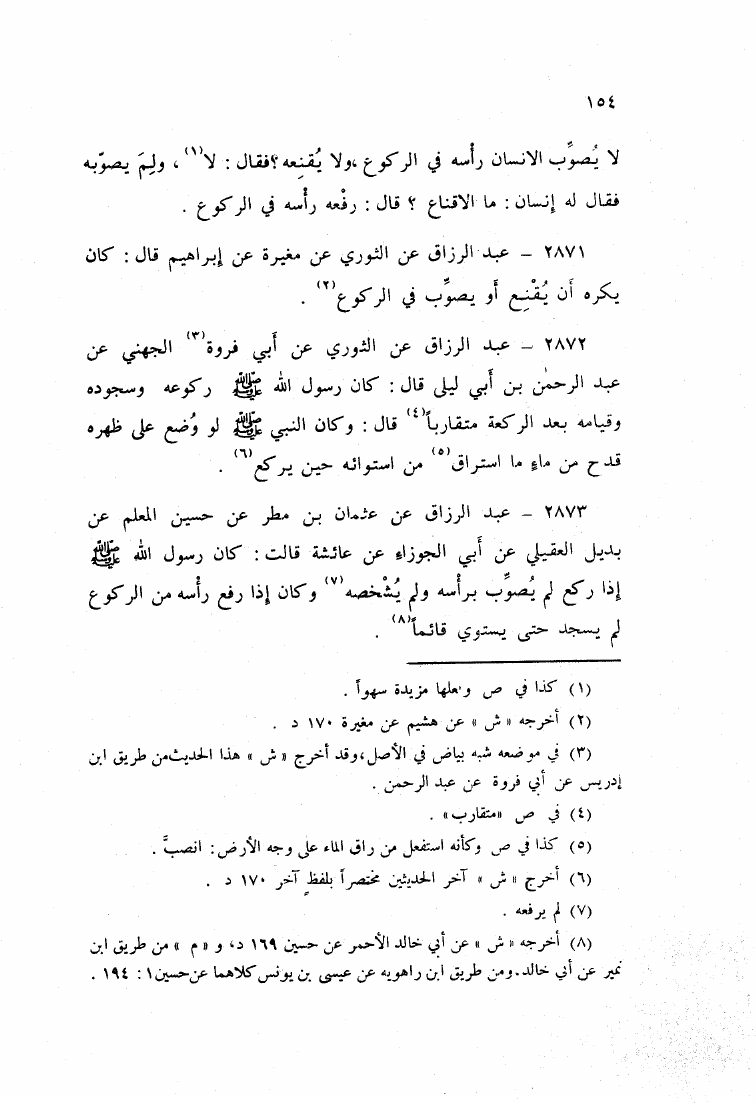 ١٥٤
لا يُصوِّب الانسان رأْسه في الركوع ،ولا يُقنِعه؟فقال : لا(١) ، ولِمَ يصوّبه
فقال له إنسان : ما الاقناع ؟ قال : رفْعه رأْسه في الركوع .
٢٨٧١ – عبد الرزاق عن الثوري عن مغيرة عن إبراهيم قال : كان
يكره أَن يُقْنِع أَو يصوِّب في الركوع(٢) .
٢٨٧٢ – عبد الرزاق عن الثوري عن أَبي فروة(٣) الجهني عن
عبد الرحمٰن بن أَبي ليلى قال : كان رسول الله ﷺ ركوعه وسجوده
وقيامه بعد الركعة متقارباً(٤) قال : وكان النبي ﷺ لو وُضع على ظهره
قدح من ماءٍ ما استراق(٥) من استوائه حين يركع(٦) .
٢٨٧٣ – عبد الرزاق عن عثمان بن مطر عن حسين المعلم عن
بديل العقيلي عن أَبي الجوزاءِ عن عائشة قالت : كان رسول الله ﷺ
إذا ركع لم يُصوِّب برأْسه ولم يُشْخصه(٧) وكان إذا رفع رأْسه من الركوع
لم يسجد حتى يستوي قائماً(٨) .
(١) كذا في ص ولعلها مزيدة سهواً .
(٢) أخرجه « ش » عن هشيم عن مغيرة ١٧٠ د .
(٣) في موضعه شبه بياض في الأصل،وقد أخرج « ش » هذا الحديث من طريق ابن
إدريس عن أبي فروة عن عبد الرحمن .
(٤) في ص «متقارب» .
(٥) كذا في ص وكأنه استفعل من راق الماء على وجه الأرض : انصبَّ .
(٦) أخرج « ش » آخر الحديثين مختصراً بلفظٍ آخر ١٧٠ د .
(٧) لم يرفعه .
(٨) أخرجه « ش » عن أبي خالد الأحمر عن حسين ١٦٩ د، و « م » من طريق ابن
نمير عن أبي خالد.ومن طريق ابن راهويه عن عيسى بن يونس كلاهما عن حسين ١ : ١٩٤ .